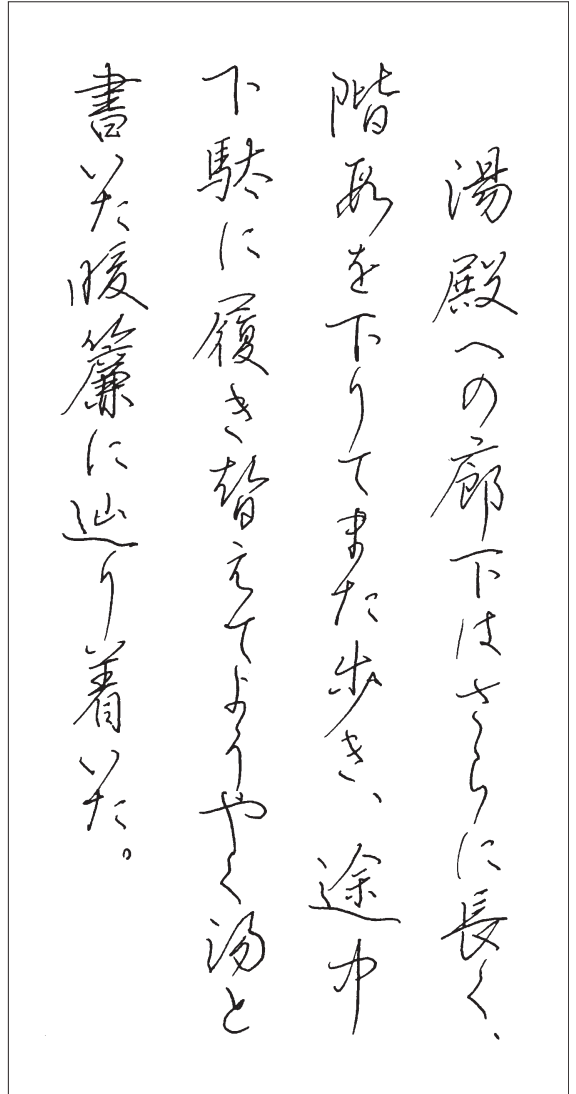 湯殿への廊下はさらに長く、
階段を下りてまた歩き、途中
下駄に履き替えてようやく湯と
書いた暖簾に辿り着いた。